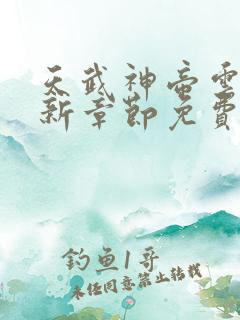 天武神帝雲
新章節免費
釣魚1哥
未经同意禁止转载